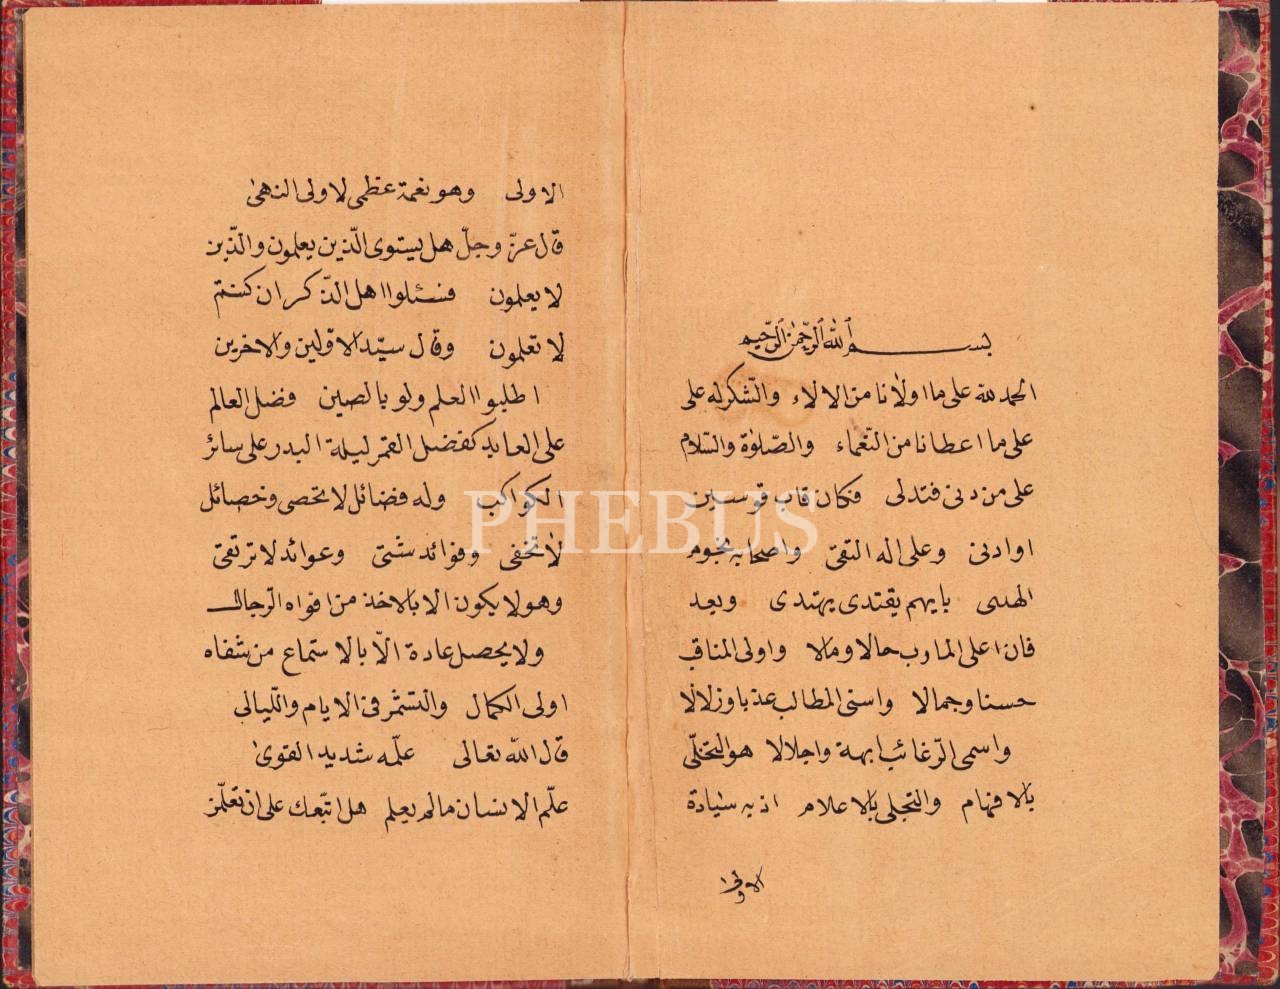 بسم الله الرحمن الرحيم
الحمد لله على ما اولانا من الالاء والشكر له على
على ما اعطانا من النعماء والصلوة والسلام
على من دنى فتدلى فكان قاب قوسين
اوادنى وعلى اله التقى واصحابه نجوم
الهدى بايهم يقتدى يهتدى وبعد
فان اعلى المارب حالا ومالا واولى المناقب
حسنا وجمالا واسنى المطالب عذبا وزلالا
واسمى الرغائب ابهة واجلالا هو التخلى
بالافهام والتجلى بالاعلام اذ به سيادة
الاولى
الاولى وهو نعمة عظمى لاولى النهى
قال عزّ وجلّ هل يستوى الّذين يعلمون والّذين
لا يعلمون فسئلوا اهل الذّكر ان كنتم
لا تعلمون وقال سيّد الاوّلين والاخرين
اطلبوا العلم ولو بالصين فضل العالم
على العابد كفضل القمر ليلة البدر على سائر
الكواكب وله فضائل لا تحصى وخصائل
لا تخفى وفوائد شتى وعوائد لا ترتقى
وهو لا يكون الا بالاخذ من افواه الرجال
ولا يحصل عادة الّا بالاستماع من شفاه
اولى الكمال والتشمّر فى الايام واللّيالى
قال الله تعالى علّمه شديد القوى
علّم الانسان مالم يعلم هل اتّبعك على ان تعلّمن
PHEBUS